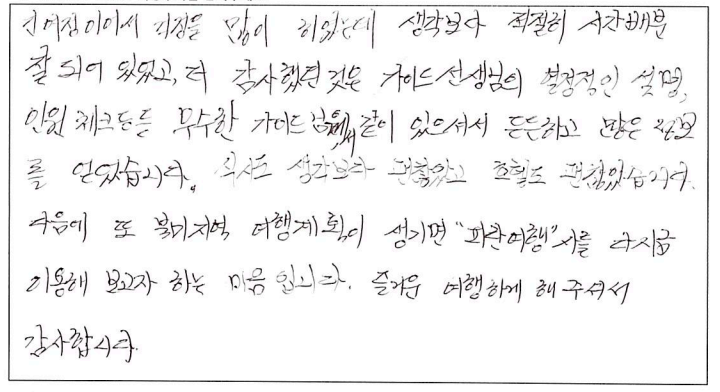 걱정을 많이 하였는데 생각보다 적절히 시간배분
잘 되어 있었고, 더 감사했던 것은 가이드선생님의 열정적인 설명,
인원 체크 등등 우수한 가이드님께서 같이 있으셔서 든든하고 많은 정보
를 얻었습니다. 식사도 생각보다 괜찮았고 호텔도 괜찮았습니다.
다음에 또 북미지역 여행계획이 생기면 "파란여행"사를 다시금
이용해 보고자 하는 마음입니다. 즐거운 여행하게 해 주셔서
감사합니다.